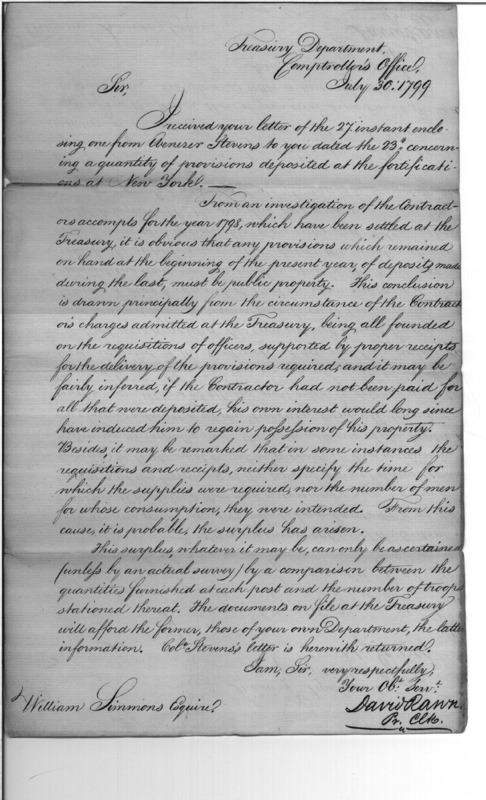 Treasury Department.
Comptroller's Office,
July 30: 1799
Sir,
I received your letter of the 27 instant enclo-
sing one from Ebenezer Stevens to you dated the 23d concern-
ing a quantity of provisions deposited at the fortificati-
ons at New York.—
From an investigation of the Contract-
ors accompts for the year 1798, which have been settled at the
Treasury, it is obvious that any provisions which remained
on hand at the beginning of the present year, of deposits made
during the last, must be public property. This conclusion
is drawn principally from the circumstance of the Contract
ors charges admitted at the Treasury, being all founded
on the requisitions of officers, supported by proper receipts
for the delivery of the provisions required; and it may be
fairly inferred, if the Contractor had not been paid for
all that were deposited, his own interest would long since
have induced him to regain possession of his property.
Besides, it may be remarked that in some instances the
requisitions and receipts, neither specify the time for
which the supplies were required, nor the number of men
for whose consumption, they were intended. From this
cause, it is probable, the surplus has arisen.
This surplus whatever it may be, can only be ascertained
(unless by an actual survey) by a comparison between the
quantities furnished at each post and the number of troops
stationed thereat. The documents on file at the Treasury
will afford the former, those of your own Department, the latter
information. Colo Stevens's letter is herewith returned.
I am, Sir, very respectfully,
Your Obt Servt
David Rawn
Pr. Clk.
William Simmons Esquire